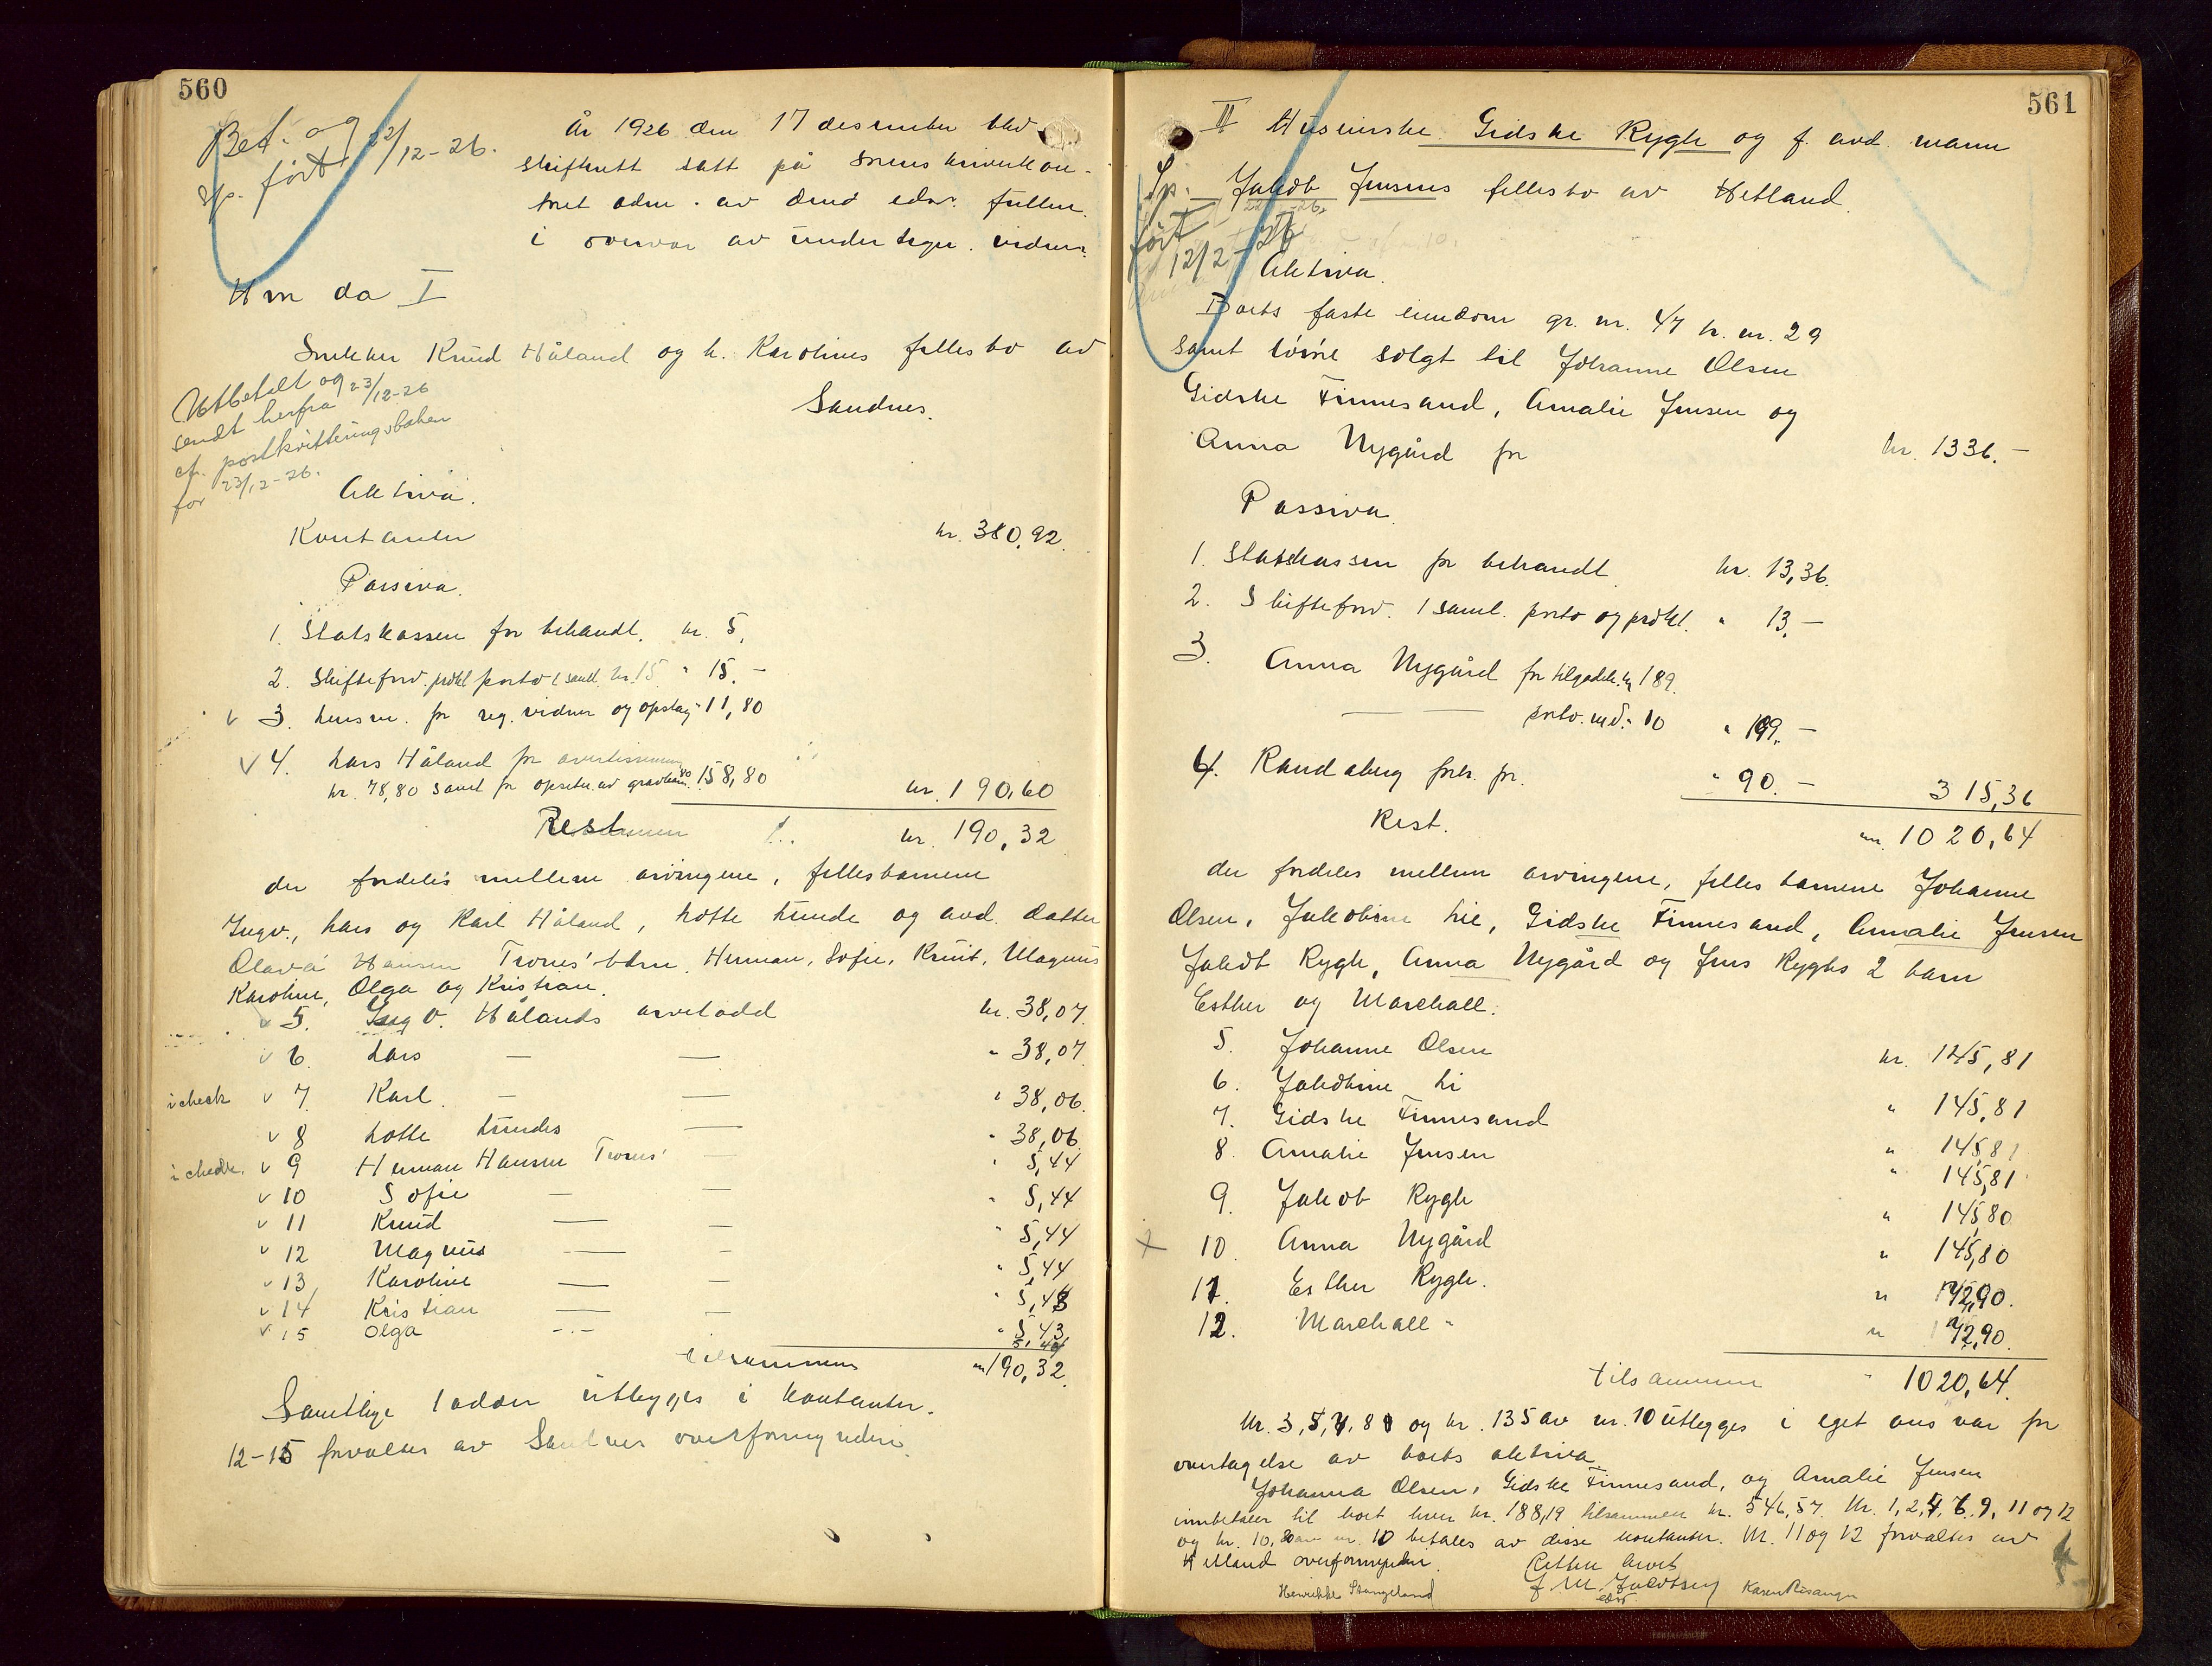 560
Bet. og 22/12-26.
sp. ført
År 1926 den 17 desember blev
skifterett satt på sorenskriverkon-
toret adm. av dmd edsv. fullm.
i overvær av undertegn. vidner.
Hvor da I
Snekker Knud Håland og h. Karolines fellesbo av
Sandnes.
Utbetalt og 23/12-26
sendt herfra
cfr. postkvitteringsboken
for 23/12-26.
Aktiva.
Kontanter kr. 380,92.
Passiva.
1. Statskassen for behandl. kr. 5,
2. Skifteforv. prokl porto 1 saml. kr. 15 " 15.-
v 3. Lensm. for reg. vidner og opslag " 11,80
v 4. Lars Håland for avertissement
kr. 78,80 samt for opsetn. av gravstein 158,80 kr. 190,60
Resten kr. 190,32
der fordeles mellem arvingene, fellesbarnene
Ingv., Lars og Karl Håland, Lotte Lunde og avd. datter
Olava Hansen Trones' barn Herman, Sofie, Knut, Magnus
Karoline, Olga og Kristian.
v 5. Ingv. Hålands arvelodd kr. 38,07.
v 6. Lars — — " 38,07
i check v 7. Karl. — — " 38,06.
v 8 Lotte Lundes — " 38,06
i check. v 9 Herman Hansen Trones' — " 5,44
v 10 Sofie — — " 5,44
v 11 Knud — — " 5,44
v 12 Magnus — — " 5,44
v 13 Karoline — — " 5,43
v 14 Kristian — — " 5,43
v 15 Olga -.- 5,44
tilsammen kr 190,32.
Samtlige lodder utlegges i kontanter.
12-15 forvaltes av Sandnes overformynderi.
561
II Husmorske Gidske Rygh og f. avd. mann
Jakob Jensens fellesbo av Hetland.
Sp.
ført
12/2-26
Aktiva.
Boets faste eiendom gr. nr. 47 br. nr. 29
samt løsøre solgt til Johanne Olsen
Gidske Finnesand, Amalie Jensen og
Anna Nygård for kr. 1336.-
Passiva.
1. Statskassen for behandl. kr. 13,36.
2. Skifteforv. 1 saml. porto og prokl. " 13.-
3. Anna Nygård for tilgodeh. kr 189.
— — porto. m.v. " 10 " 199.-
4. Randaberg forbr. for. " 90.- 315,36
Rest. kr. 1020,64
der fordeles mellem arvingene, felles barnene Johanne
Olsen, Jakobine Lie, Gidske Finnesand, Amalie Jensen
Jakob Rygh, Anna Nygård og Jens Ryghs 2 barn
Esther og Marchall.
5. Johanne Olsen kr. 145,81
6. Jakobine Li " 145,81
7. Gidske Finnesand " 145,81
8. Amalie Jensen " 145,81
9. Jakob Rygh " 145,80
10. Anna Nygård " 145,80
11. Esther Rygh. " 72,90.
12. Marchall " " 72,90.
tilsammen " 1020,64.
Nr. 3, 5, 7, 8 og kr. 135 av nr. 10 utlegges i eget ansvar for
overtagelse av boets aktiva.
Johanna Olsen, Gidske Finnesand, og Amalie Jensen
innbetaler til boet hver kr. 188,19 tilsammen kr. 546,57. Nr. 1, 2, 4, 6, 9, 11 og 12
og kr. 10,80 av nr. 10 betales av disse kontanter. Nr. 11 og 12 forvaltes av
Hetland overformynderi.
Retten hevet
J M Jacobsen
edsv
Henrikke Stangeland
Karen Risanger